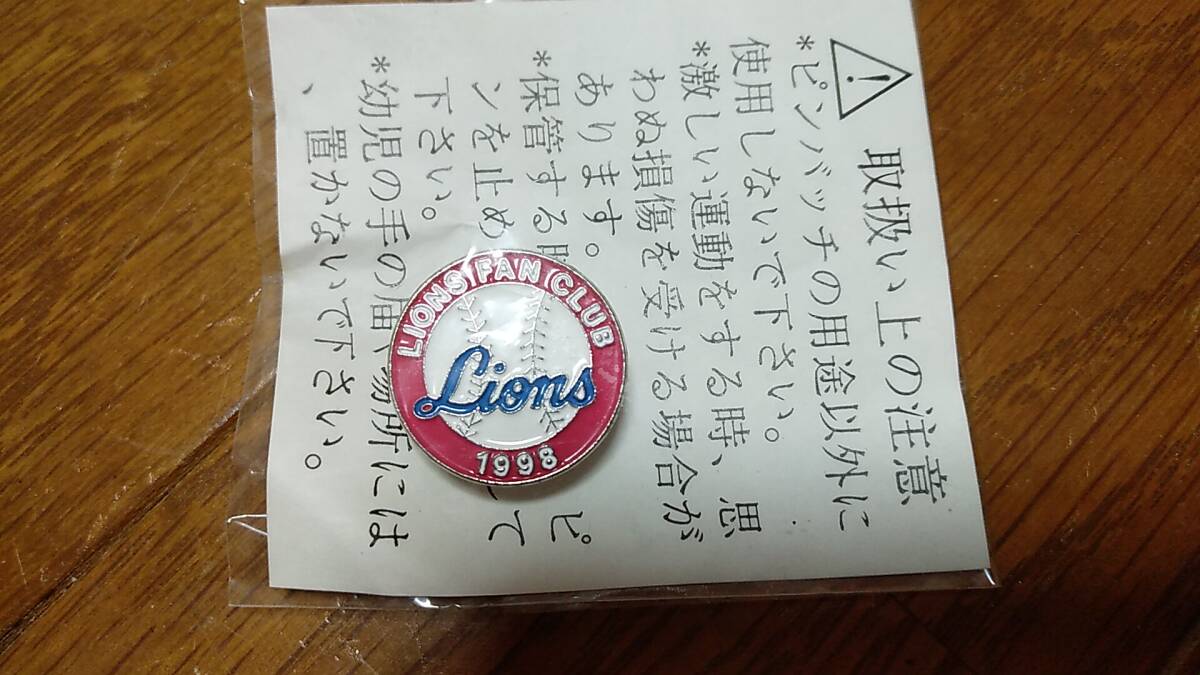 取扱い上の注意
*ピンバッチの用途以外に
使用しないで下さい。
*激しい運動をする時、思
わぬ損傷を受ける場合が
あります。
*保管する ピ
ンを止め て
下さい。
*幼児の手の届 場所には
、置かないで下さい。
LIONS FAN CLUB
Lions
1998